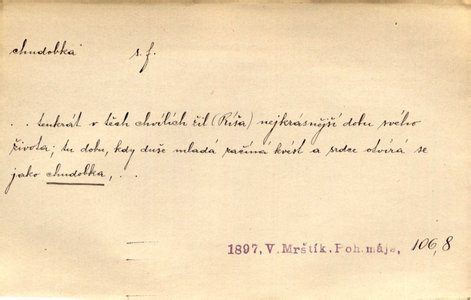 chudobka s. f.
. . tenkrát v těch chvílích žil (Ríša) nejkrásnější dobu svého
života; tu dobu, kdy duše mladá začíná kvést a srdce otvírá se
jako chudobka, . .
1897, V. Mrštík. Poh. máje, 106,8